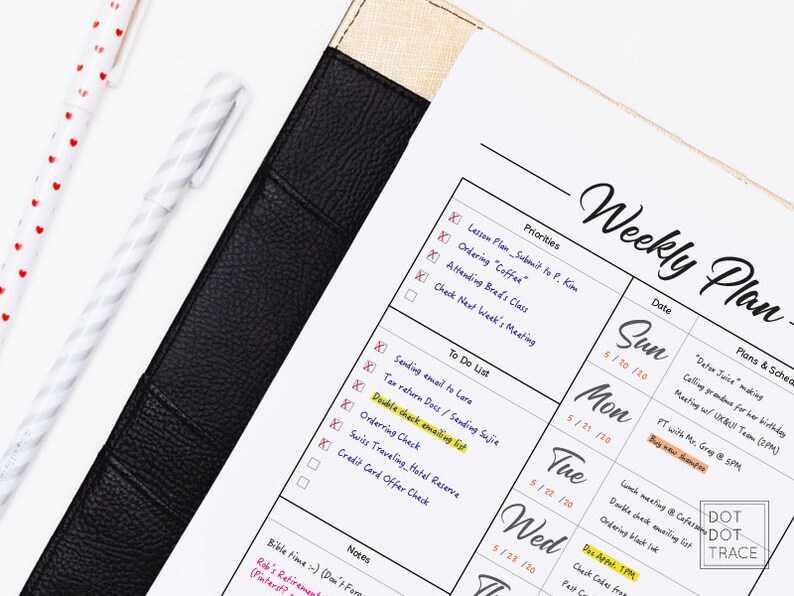 Weekly Plan
Priorities
Lesson Plan _Submit to P. Kim
Ordering "Coffee"
Attending Bred's Class
Check Next Week's Meeting
To Do List
Sending email to Lara
Tax return Docs / Sending Sujie
Double check emailing list
Orderring Check
Swiss Traveling_Hotel Reserve
Credit Card Offer Check
Notes
Bible time :-) (Don't
Rob's Retirement
(Pinterst?
Date
Plans & Sched
Sun
5 / 20 / 20
"Detox Juice" making
Calling grandma for her birthday
Meeting w/ UX&UI Team (2PM)
Mon
5 / 21 / 20
PT with Mr. Greg @ 5PM
Buy new shampoo
Tue
5 / 22 / 20
Lunch meeting @
Double check emailing list
Ordering black ink
Wed
5 / 23 / 20
Doc Appt. 1PM
Check Codes from
DOT
DOT
TRACE